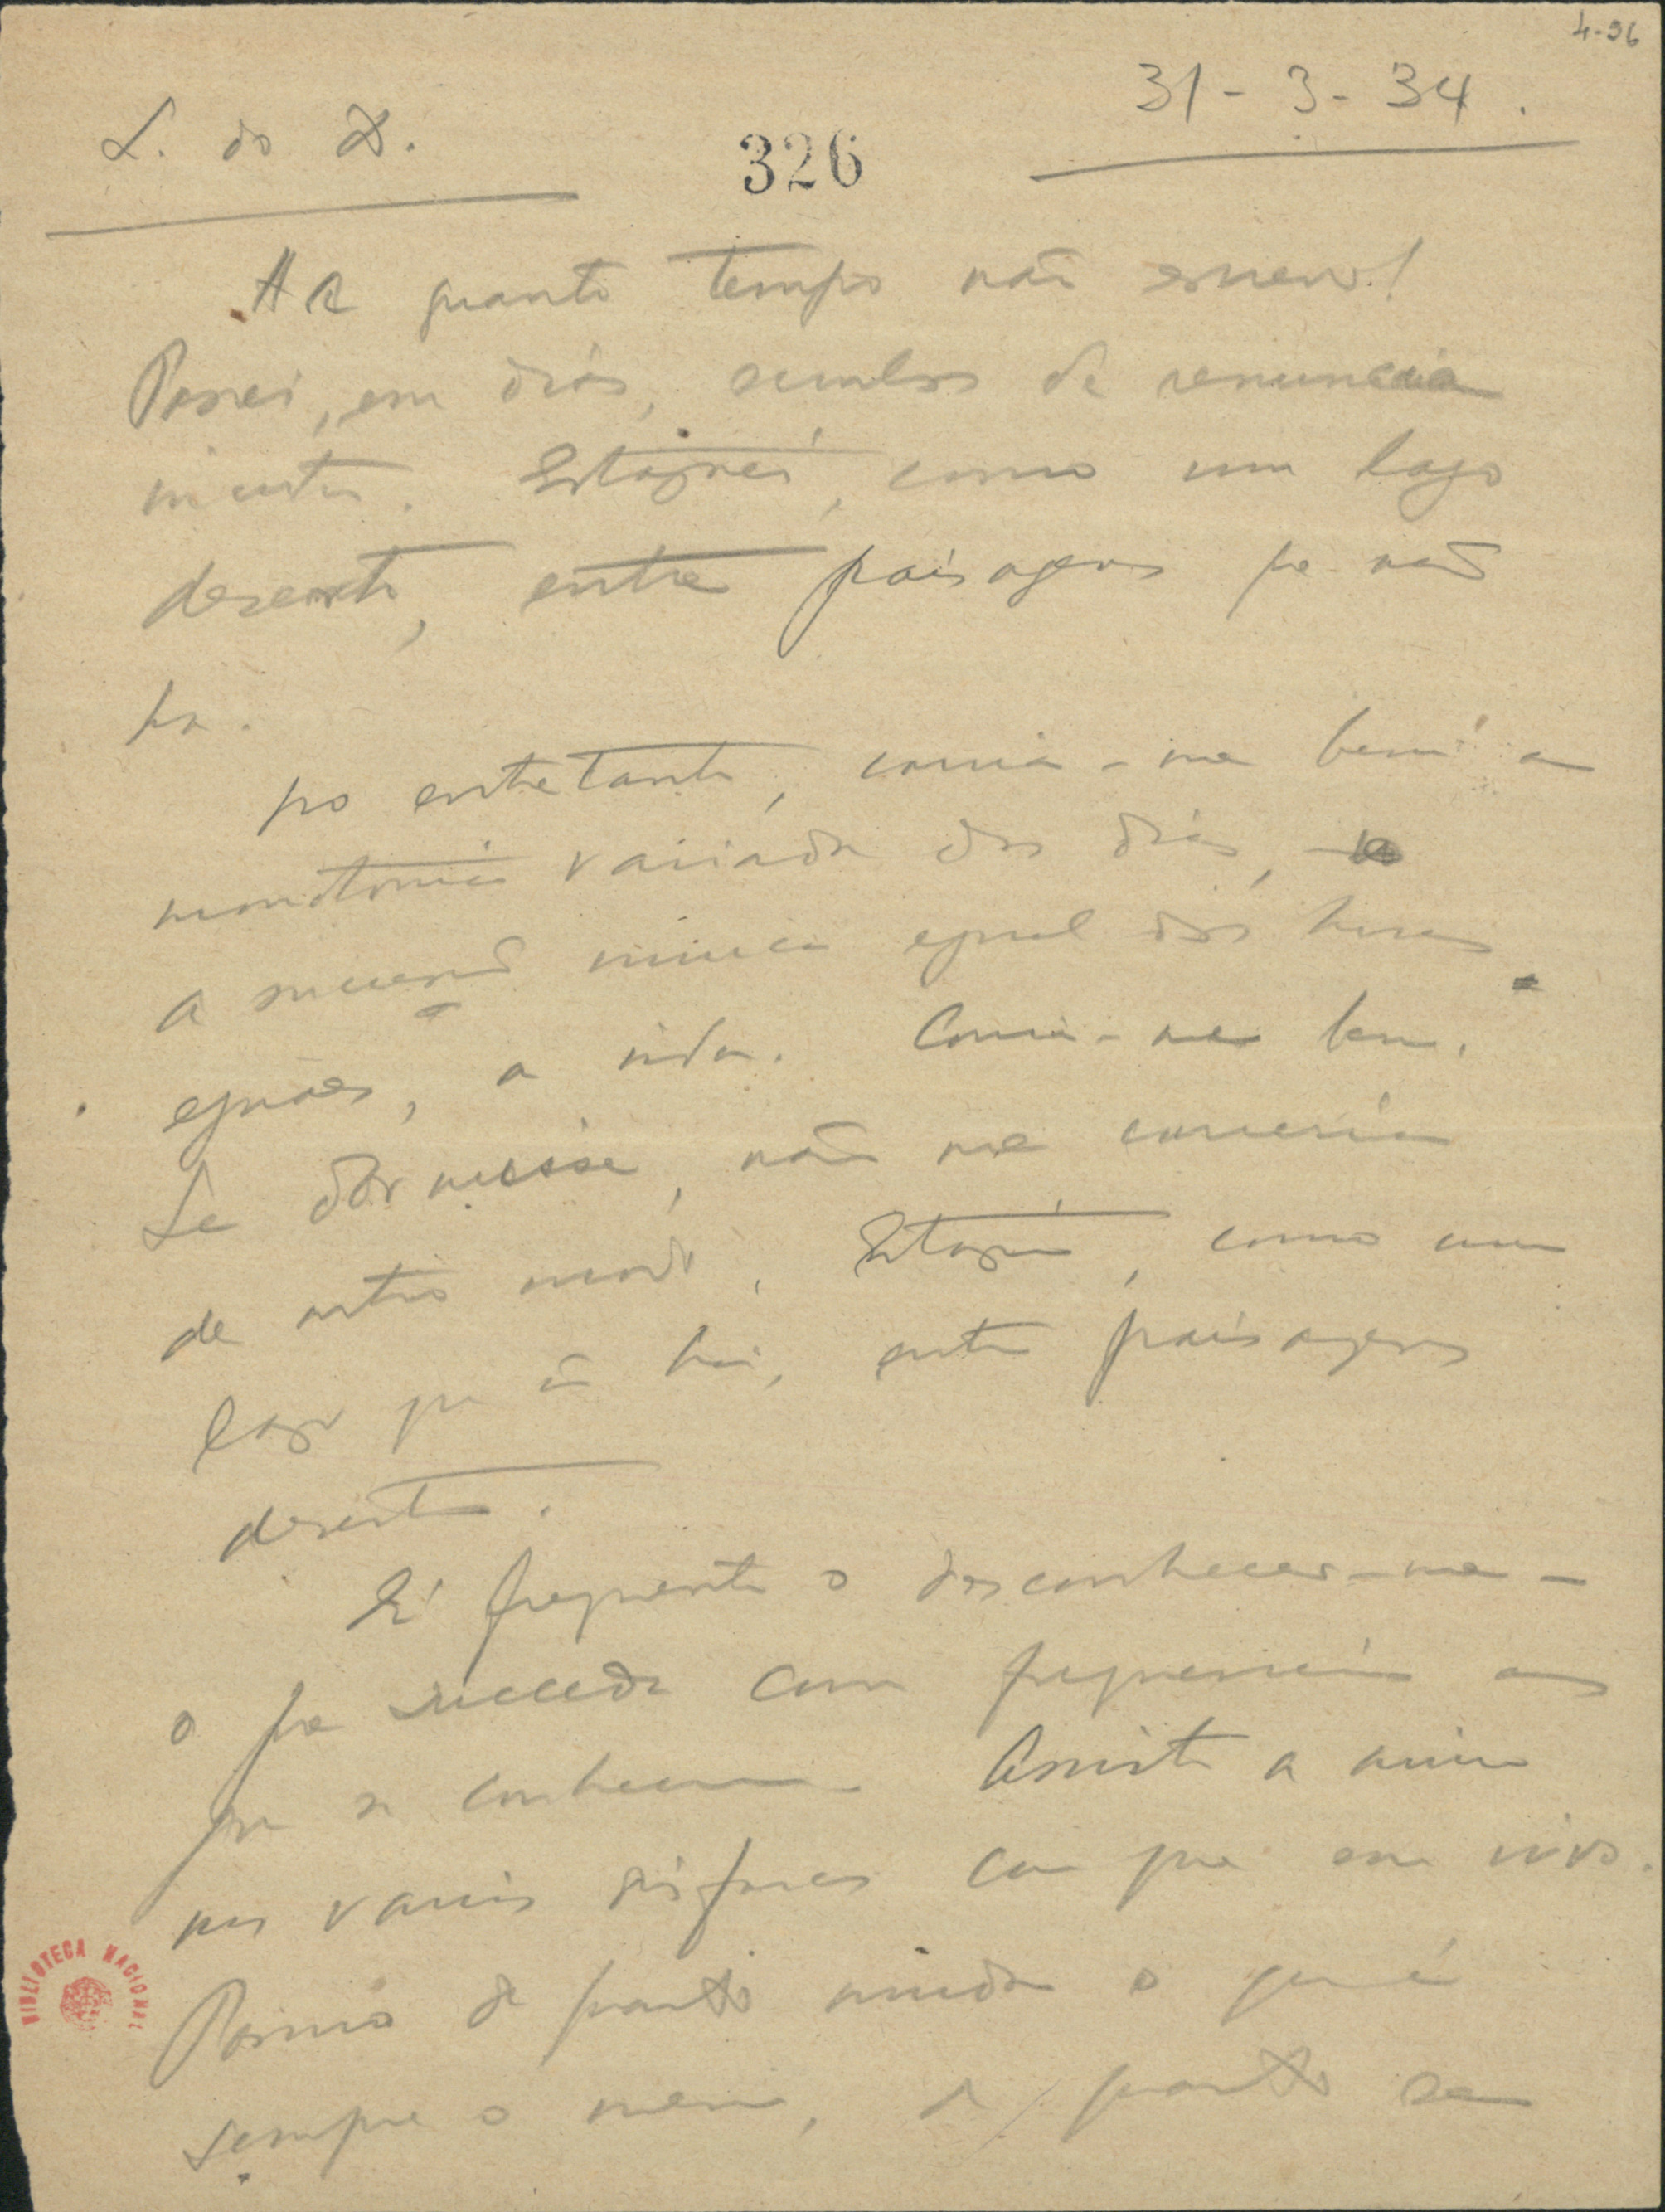 4-36
L. do D.
326
31-3-34.
Ha quanto tempo não escrevo!
Passei, em dias, seculos de renuncia
incerta. Estagnei, como um lago
deserto, entre paisagens que não
ha.
No entretanto, corria-me bem a
monotonia variada dos dias,
a successão nunca egual das horas
eguaes, a vida. Corria-me bem.
Se dormisse, não me correria
de outro modo. Estagnei, como um
lago que não ha, entre paisagens
desertas.
É frequente o desconhecer-me -
o que succede com frequencia aos
que se conhecem. Assisto a mim
nos varios disfarces com que sou vivo.
Possuo de quanto muda o que é
sempre o mesmo, de quanto se
BIBLIOTECA NACIONAL